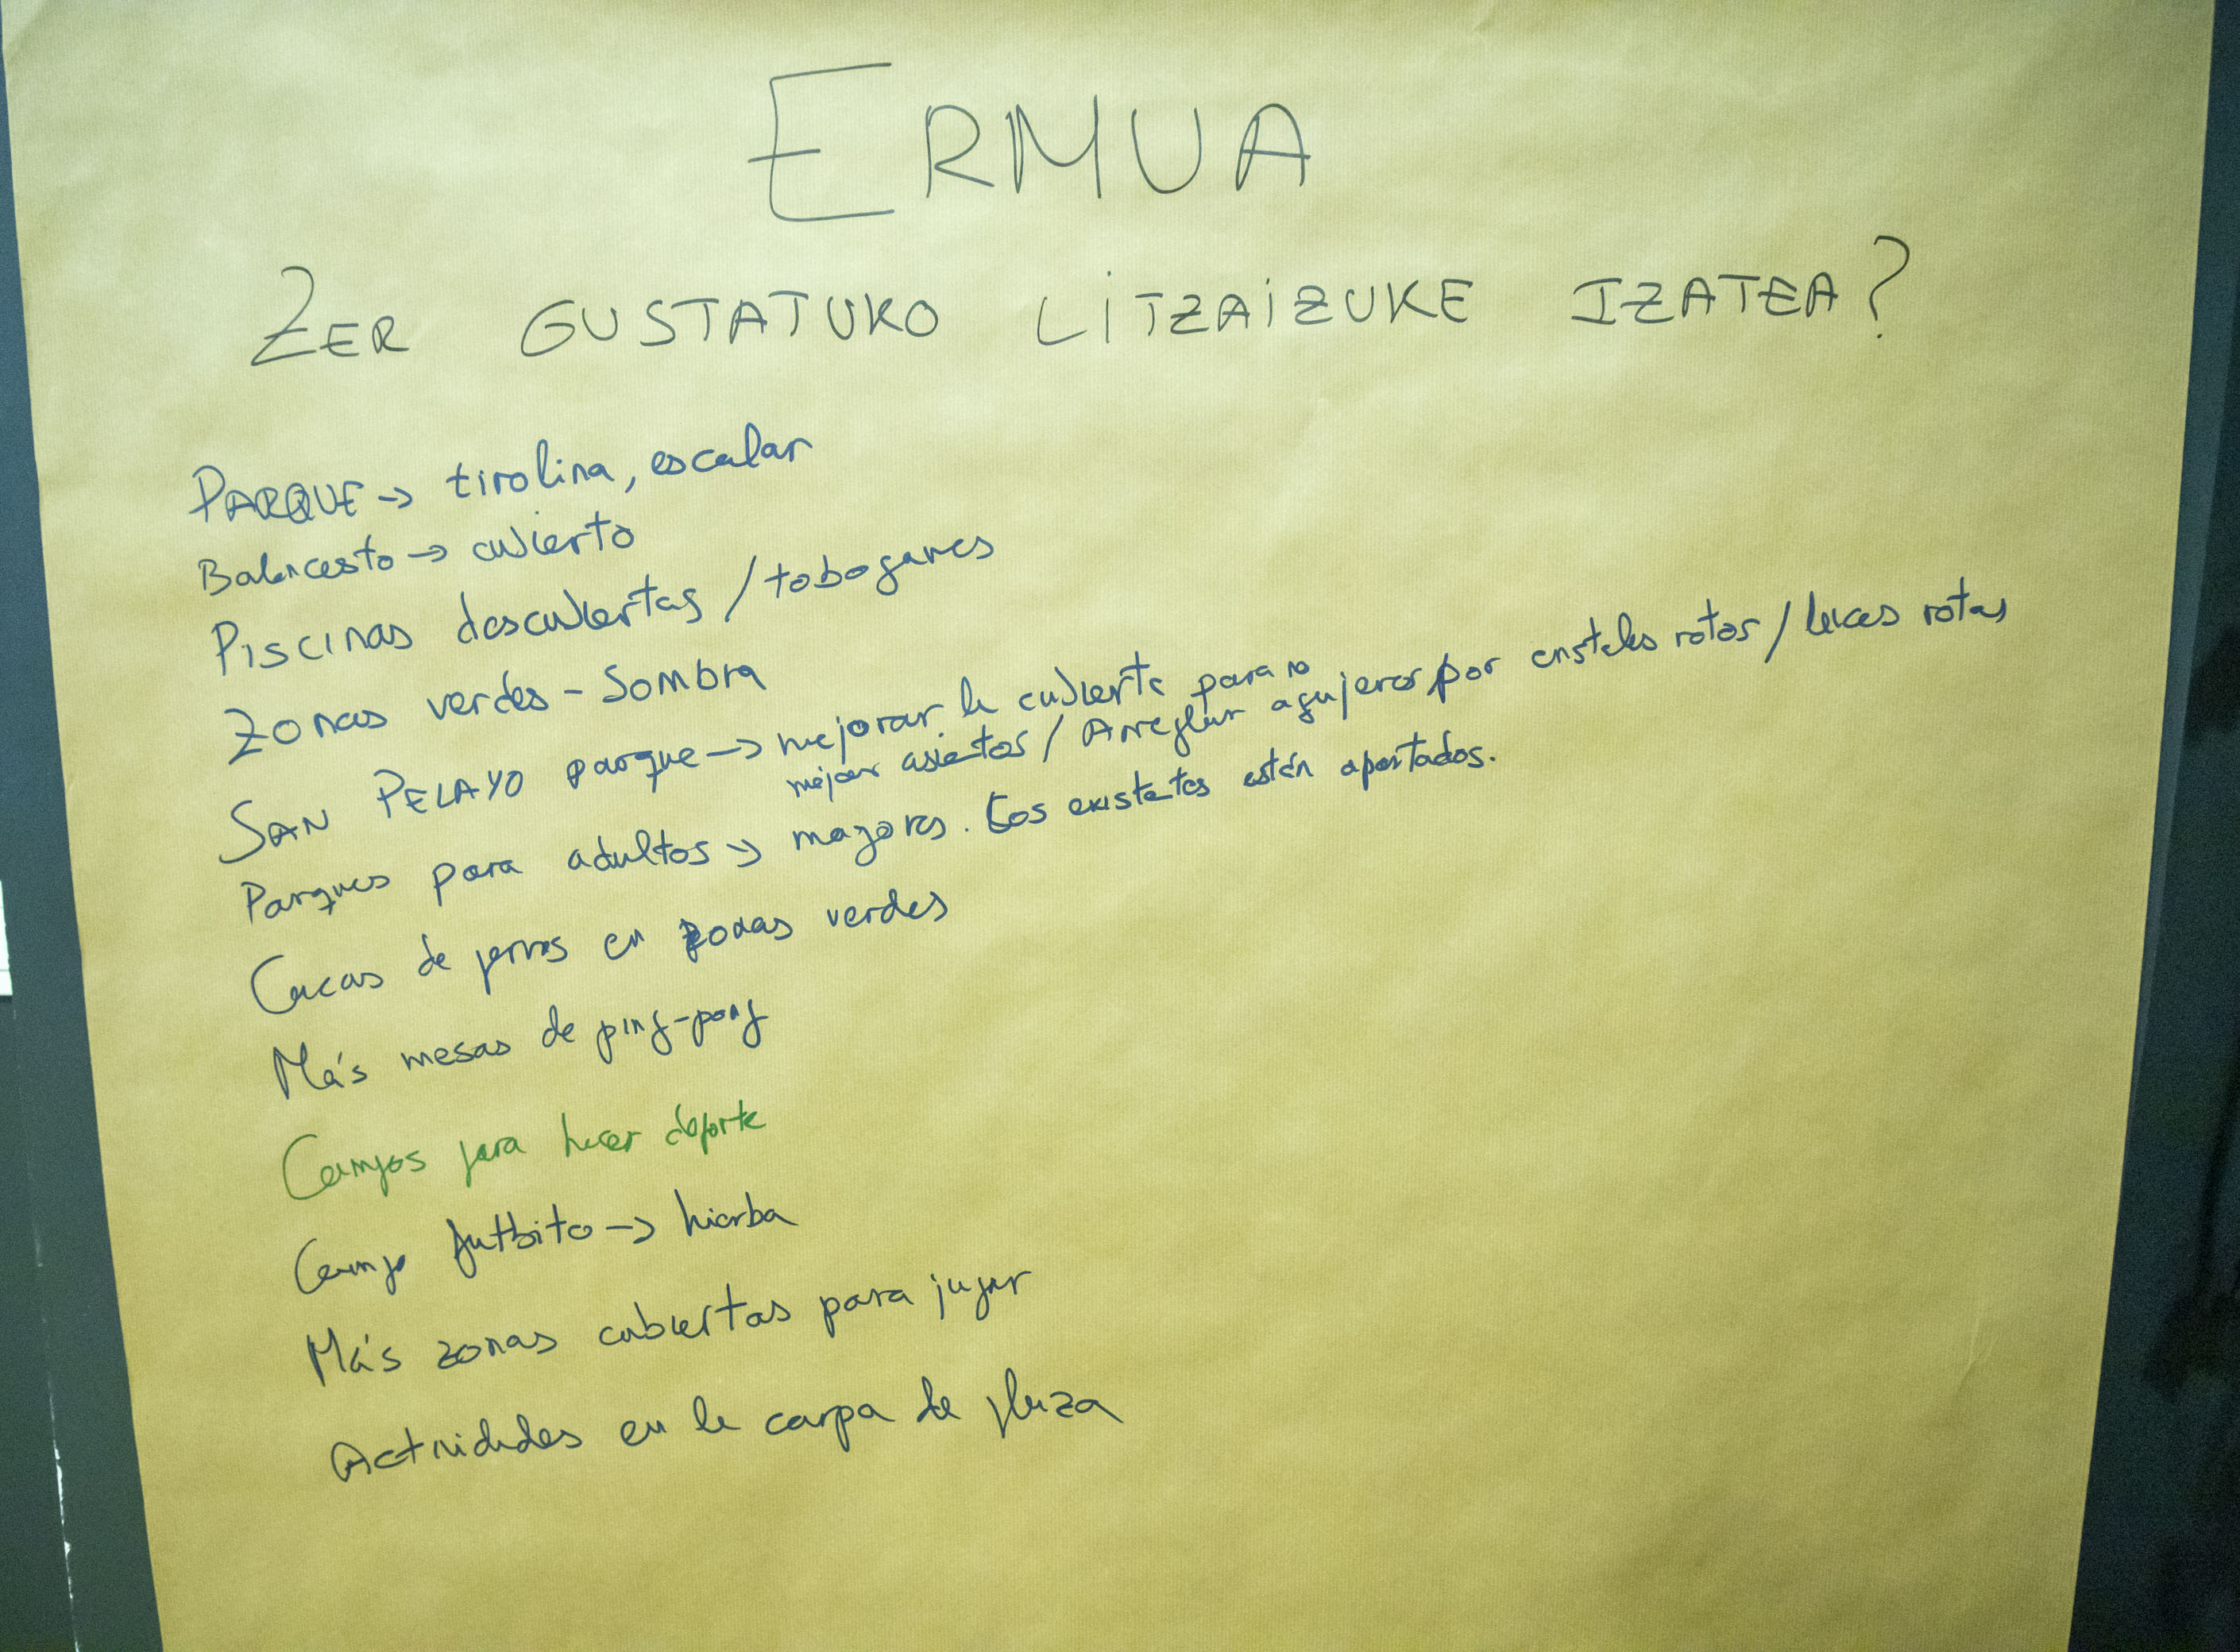 ERMUA
ZER GUSTATUKO LITZAIZUKE IZATEA?
PARQUE → tirolina, escalar
Baloncesto → cubierto
Piscinas descubiertas / toboganes
Zonas verdes - Sombra
SAN PELAYO parque → mejorar la cubierta para no
mejorar asientos / Arreglar agujeros por cristales rotos / luces rotas
Parques para adultos → mayores. Los existentes están apartados.
Cacas de perros en zonas verdes
Más mesas de ping-pong
Campos para hacer deporte
Campo futbito → hierba
Más zonas cubiertas para jugar
Actividades en la carpa de plaza